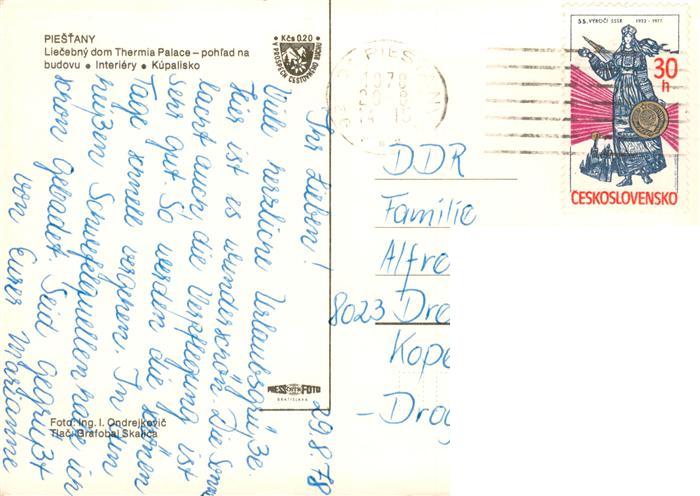 PIEŠŤANY
Liečebný dom Thermia Palace – pohľad na
budovu • Interiéry • Kúpalisko
Kčs 0.20
V PROSPECH CESTOVNÉHO RUCHU
55. VÝROČÍ SSSR 1922-1977
30
h
ČESKOSLOVENSKO
29.8.78
Ihr Lieben!
Viele herzliche Urlaubsgrüße.
Hier ist es wunderschön. Die Sonne
lacht auch, die Verpflegung ist
sehr gut. So werden die schönen
Tage schnell vergehen. In den
heißen Schwefelquellen hab ich
schon gebadet. Seid gegrüßt
von Eurer Marianne
DDR
Familie
Alfre
8023 Dre
Kope
- Drog
PRESSFOTO
BRATISLAVA
Foto: Ing. I. Ondrejkovič
Tlač: Grafobal Skalica